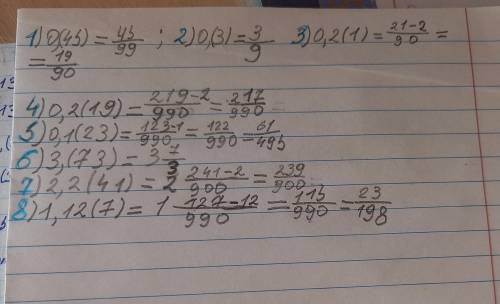 1) 0,(45) = 45/99 ; 2) 0,(3) = 3/9 3) 0,2(1) = 21-2/90 =
= 19/90
4) 0,2(19) = 219-2/990 = 217/990
5) 0,1(23) = 123-1/990 = 122/990 = 61/495
6) 3,(73) = 3 7
7) 2,2(41) = 2 241-2/900 = 239/900
8) 1,12(7) = 1 127-12/990 = 115/990 = 23/198